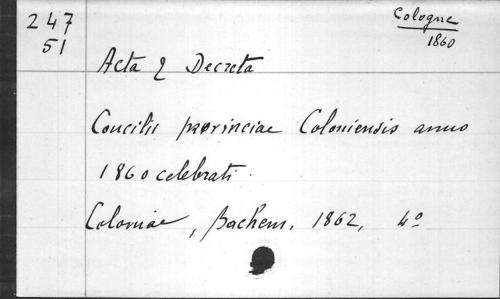 247
51
Cologne
1860
Acta & Decreta
Concilii provinciae Coloniensis anno
1860 celebrati.
Coloniae, Bachem, 1862, 4º